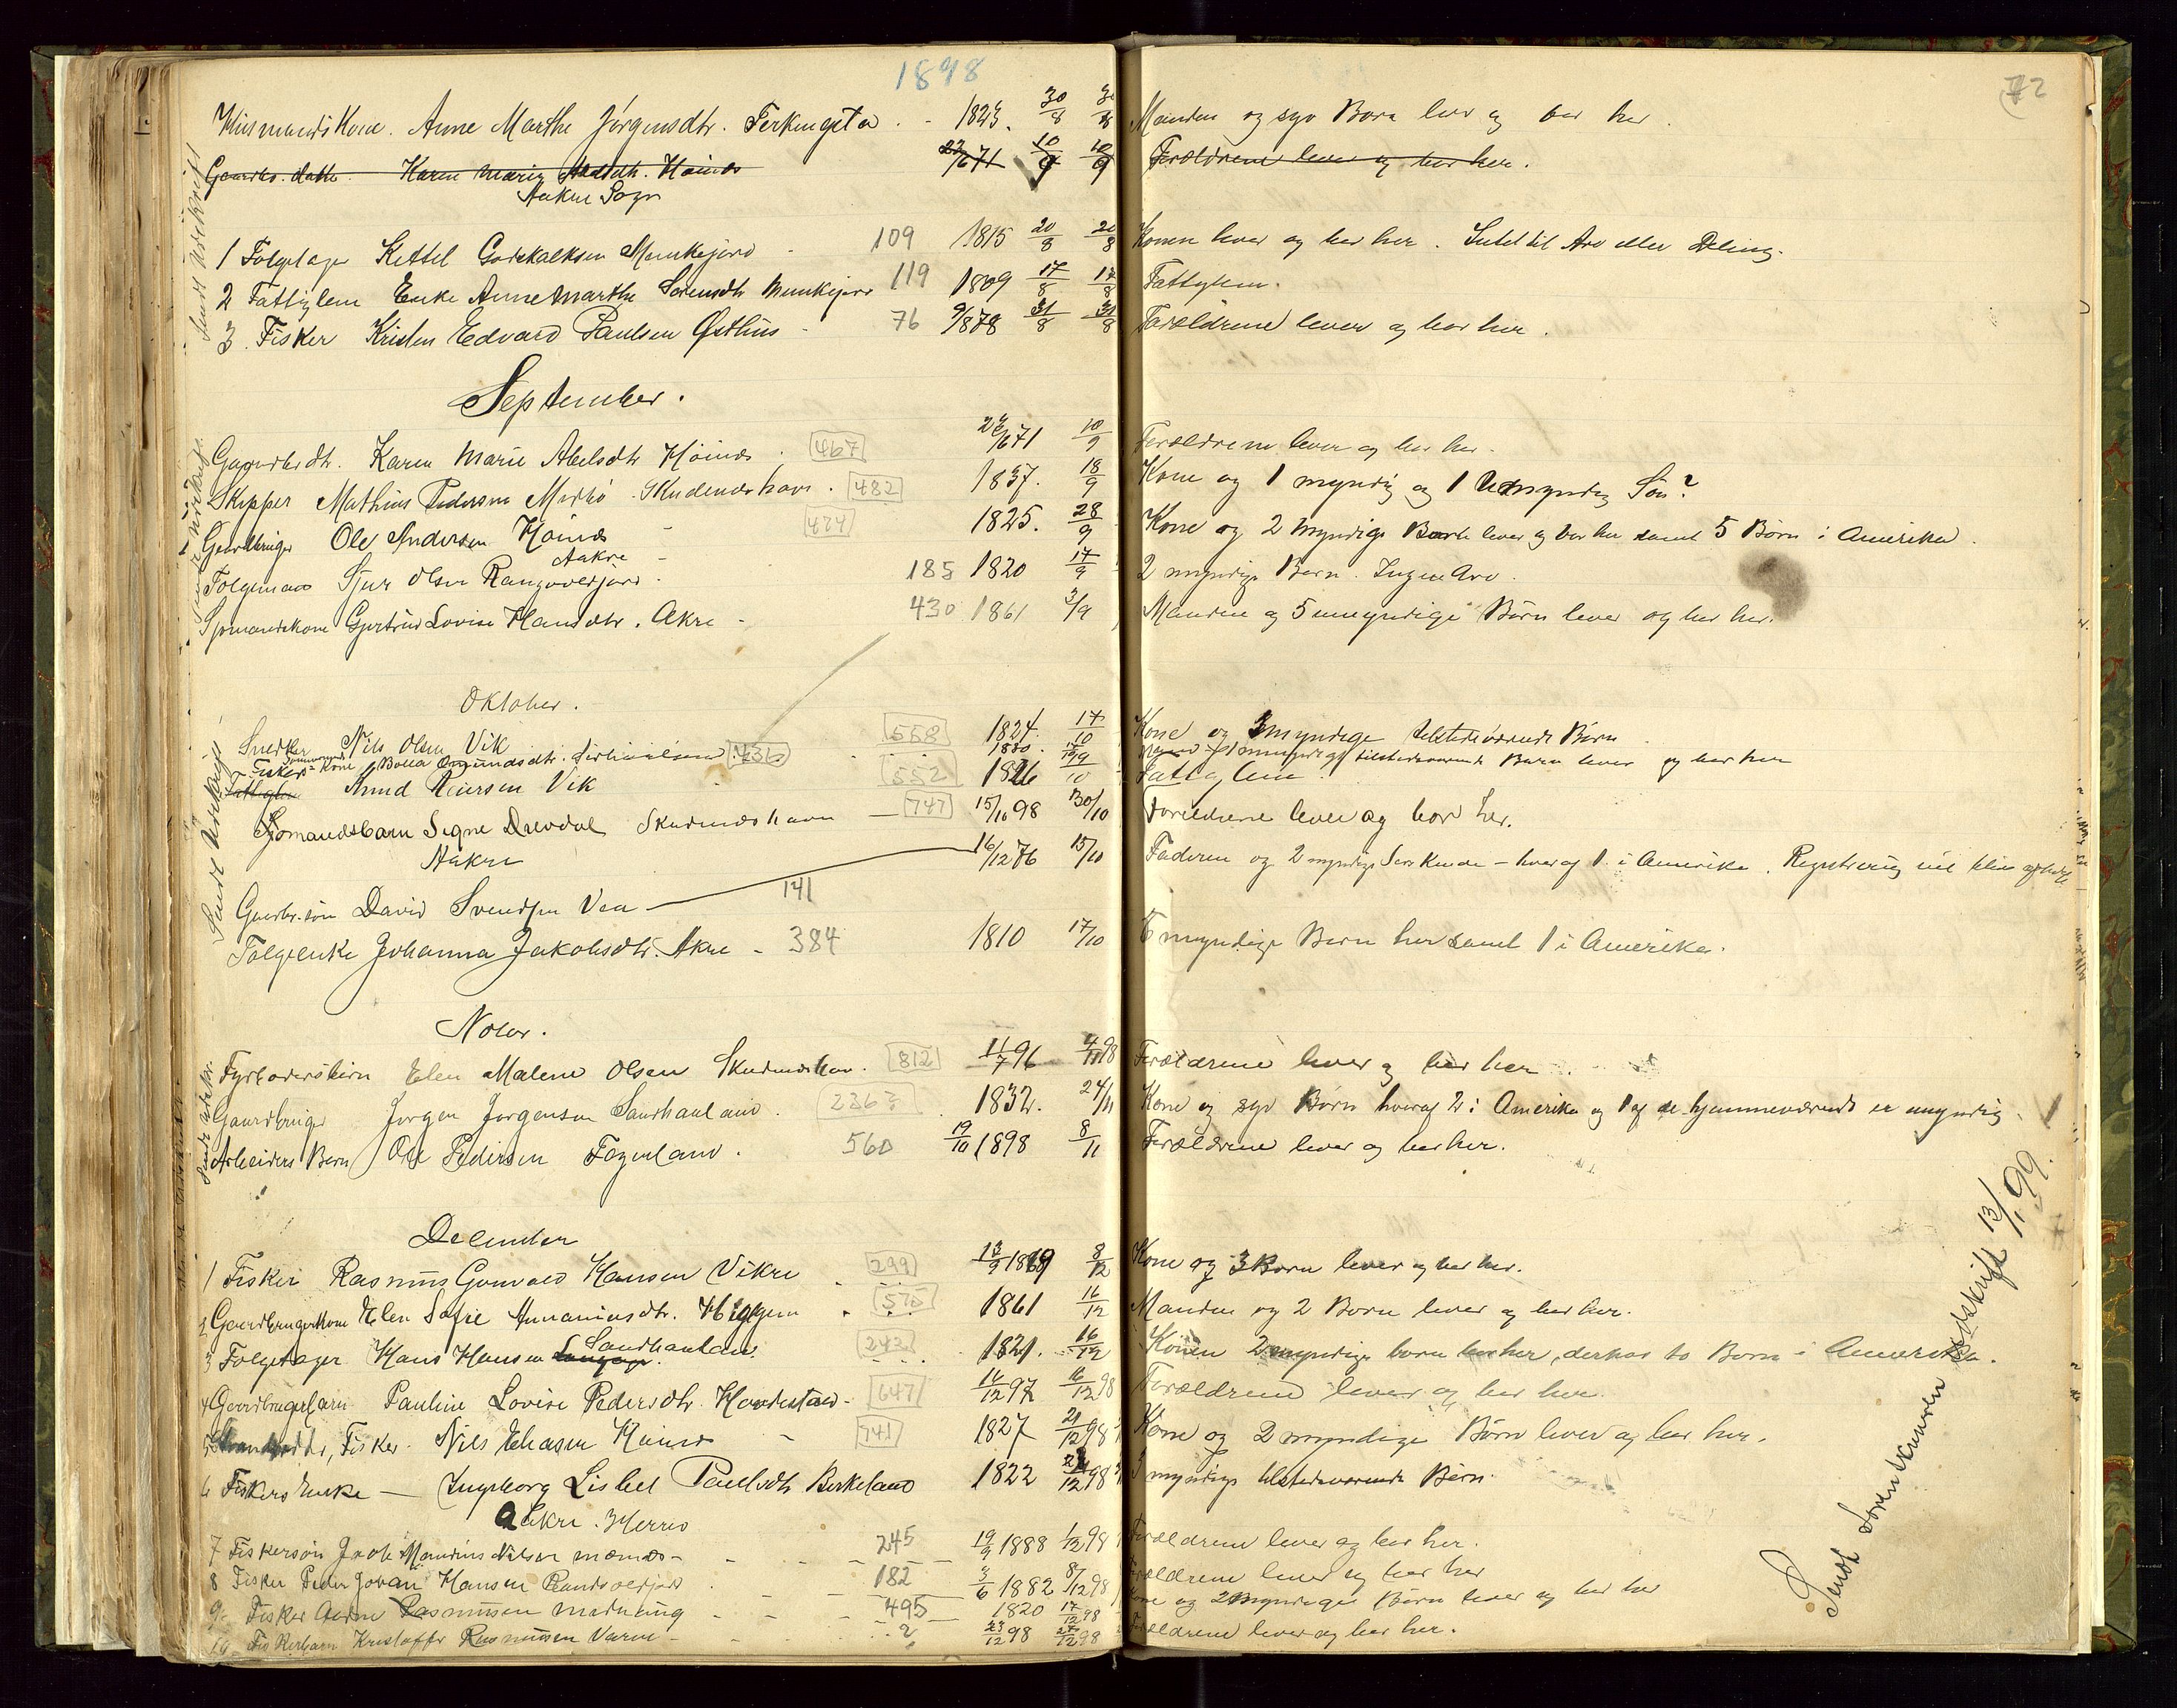 1898
72
Husmands Kone. Anne Marthe Jørgensdtr. Ferkingstad 1823. 30/8 Manden og syv Børn lever og bor her.
Gaardbr. datter Karen Marie Abelsdtr. Høines 22/6 71 10/9 10/9 Forældrene lever og bor her.
Aakre Sogn
1 Folgetager Kettel Godskalksen Munkejord 109 1815 20/8 20/8 Konen lever og bor her. Intet til Arv eller Deling.
2 Fattiglem Enke Anne Marthe Sørensdtr Munkejord 119 1809 17/8 17/8 Fattiglem.
3. Fisker Kristen Edvard Paulsen Østhus 76 9/8 78 31/8 31/8 Forældrene lever og bor her.
September.
Gaardbr.dtr. Karen Marie Abelsdtr Høines 467 22/6 71 10/9 Forældrene lever og bor her.
Skipper Mathias Pedersen Medhø Skudeneshavn. 482 1837. 18/9 Kone og 1 myndig og 1 Umyndig Søn?
Gaardbruger Ole Andersen Høines 474 1825. 28/9 Kone og 2 myndige Børn lever og bor her samt 5 Børn i Amerika.
Aakre
Folgemand Sjur Olsen 185 1820 17/9 2 myndige Børn. Ingen Arv.
Sjomandskone Gjertrud Lovise Hansdtr. Akre 430 1861 3/9 Manden og 5 umyndige Børn lever og bor her.
Oktober.
Snedker Nils Olsen Vik 558 1824. 17/10 Kone og 3 myndige tilstedeværende Børn
Fisker Kone Bolla 436 1880. tilstedeværende Børn lever og bor her
Fattiglem Amund Reiersen Vik 552 1826 19/10 Fattiglem.
Sjomandsbarn Signe Drevdal Skudeneshavn 747 15/10 98 30/10 Forældrene lever og bor her.
Aakre
Gaardbr.søn David Svendsen Vea 141 16/12 76 15/10 Faderen og 2 myndige Søskende – hvoraf 1 i Amerika. Registrering vil blive afholdt
Folgeenke Johanna Jakobsdtr. Akre 384 1810 17/10 6 myndige Børn her samt 1 i Amerika.
Novbr.
Elen Malene Olsen Skudeneshavn. 812 11/7 96 4/11 98 Forældrene lever og bor her.
Gaardbruger Jørgen Jørgensen Sandhauland 236 1832. 24/11 Kone og syv Børn hvoraf 2 i Amerika og 1 af de hjemmeværende er umyndig.
Arbeiders Barn Ole Pedersen Fagerland. 560 19/10 1898 8/11 Forældrene lever og bor her.
December
1 Fisker Rasmus Gunvald Hansen Vikre 299 13/9 1869 8/12 Kone og 3 Børn lever og bor her.
2 Gaardbrugerkone Elen Sofie Ananiasdtr. 575 1861 16/12 Manden og 2 Børn lever og bor her.
3 Folgetager Hans Hansen Sandhauland 243 1821. 16/12 Konen 2 myndige børn bor her, derhos to Børn i Amerika.
4 Gaardbrugerbarn Pauline Lovise Pedersdtr. 647 16/12 97 16/12 98 Forældrene lever og bor her.
5 Fisker. Nils Eliasen Høines 741 1827 21/12 98 Kone og 2 myndige Børn lever og bor her.
6 Fiskers Enke — Ingeborg Lisbet Paulsdtr Birkeland 1822 12 98 3 myndige tilstedeværende Børn.
Aakre
7 Fiskersøn Jacob Mandius Nilsen 245 19/9 1888 1/12 98 Forældrene lever og bor her.
8 Fisker Peder Johan Hansen 182 3/6 1882 8/12 98 Forældrene lever og bor her
9 Fisker Rasmussen 495 1820 17/12 98 Kone og 2 myndige Børn lever og bor her
10 Fiskerbarn Kristoffer Rasmussen 2 23/12 98 27/12 98 Forældrene lever og bor her.
Sendt Udskrift
Sendt Udskrift
Sendt Udskrift
Sendt Udskr.
Sendt Sorenskriveren Udskrift 13/1 99.